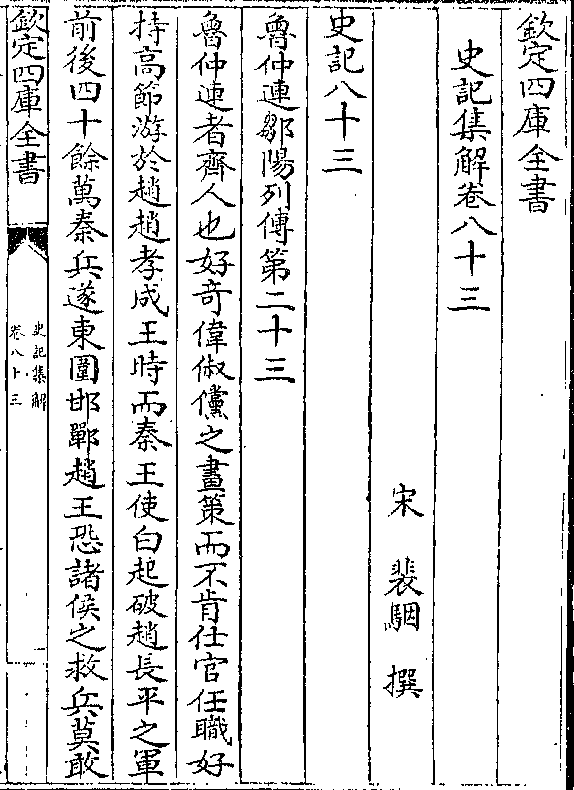 欽定四庫全書
史記集解卷八十三
宋 裴駰 撰
史記八十三
魯仲連鄒陽列傳第二十三
魯仲連者齊人也好奇偉俶儻之畫策而不肯仕官任職好
持髙節游於趙趙孝成王時而秦王使白起破趙長平之軍
前後四十餘萬秦兵遂東圍邯鄲趙王恐諸侯之救兵莫敢
欽定四庫全書
史記集解
卷八十三